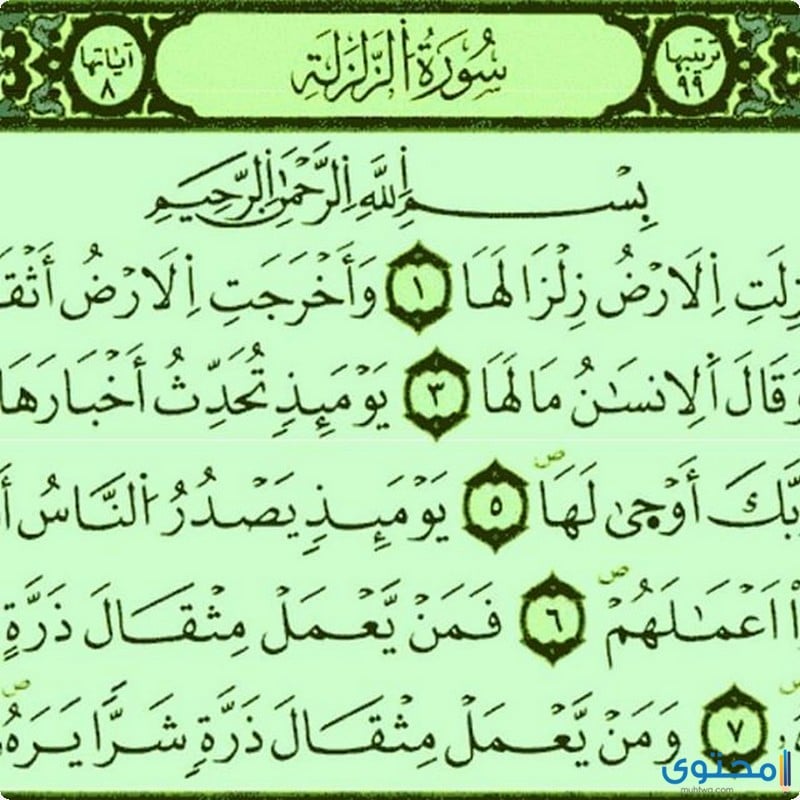 ترتيبها ٩٩ سُورَةُ الزَّلْزَلَةِ آياتها ٨
بِسْمِ اِللَّهِ اِلرَّحْمَٰنِ اِلرَّحِيمِ
زِلَتِ اِلَارْضُ زِلْزَالَهَا ١ وَأَخْرَجَتِ اِلَارْضُ أَثْقَ
وَقَالَ اَلِانسَٰنُ مَا لَهَا ٣ يَوْمَئِذٍ تُحَدِّثُ أَخْبَارَهَا
بَّكَ أَوْحَىٰ لَهَا ص ٥ يَوْمَئِذٍ يَصْدُرُ اُلنَّاسُ أَ
اْ اَعْمَٰلَهُمْ ص ٦ فَمَنْ يَّعْمَلْ مِثْقَالَ ذَرَّةٍ
هُ ٧ وَمَنْ يَّعْمَلْ مِثْقَالَ ذَرَّةٍ شَرًّا يَرَهُ ص
محتوى
muhtwa.com